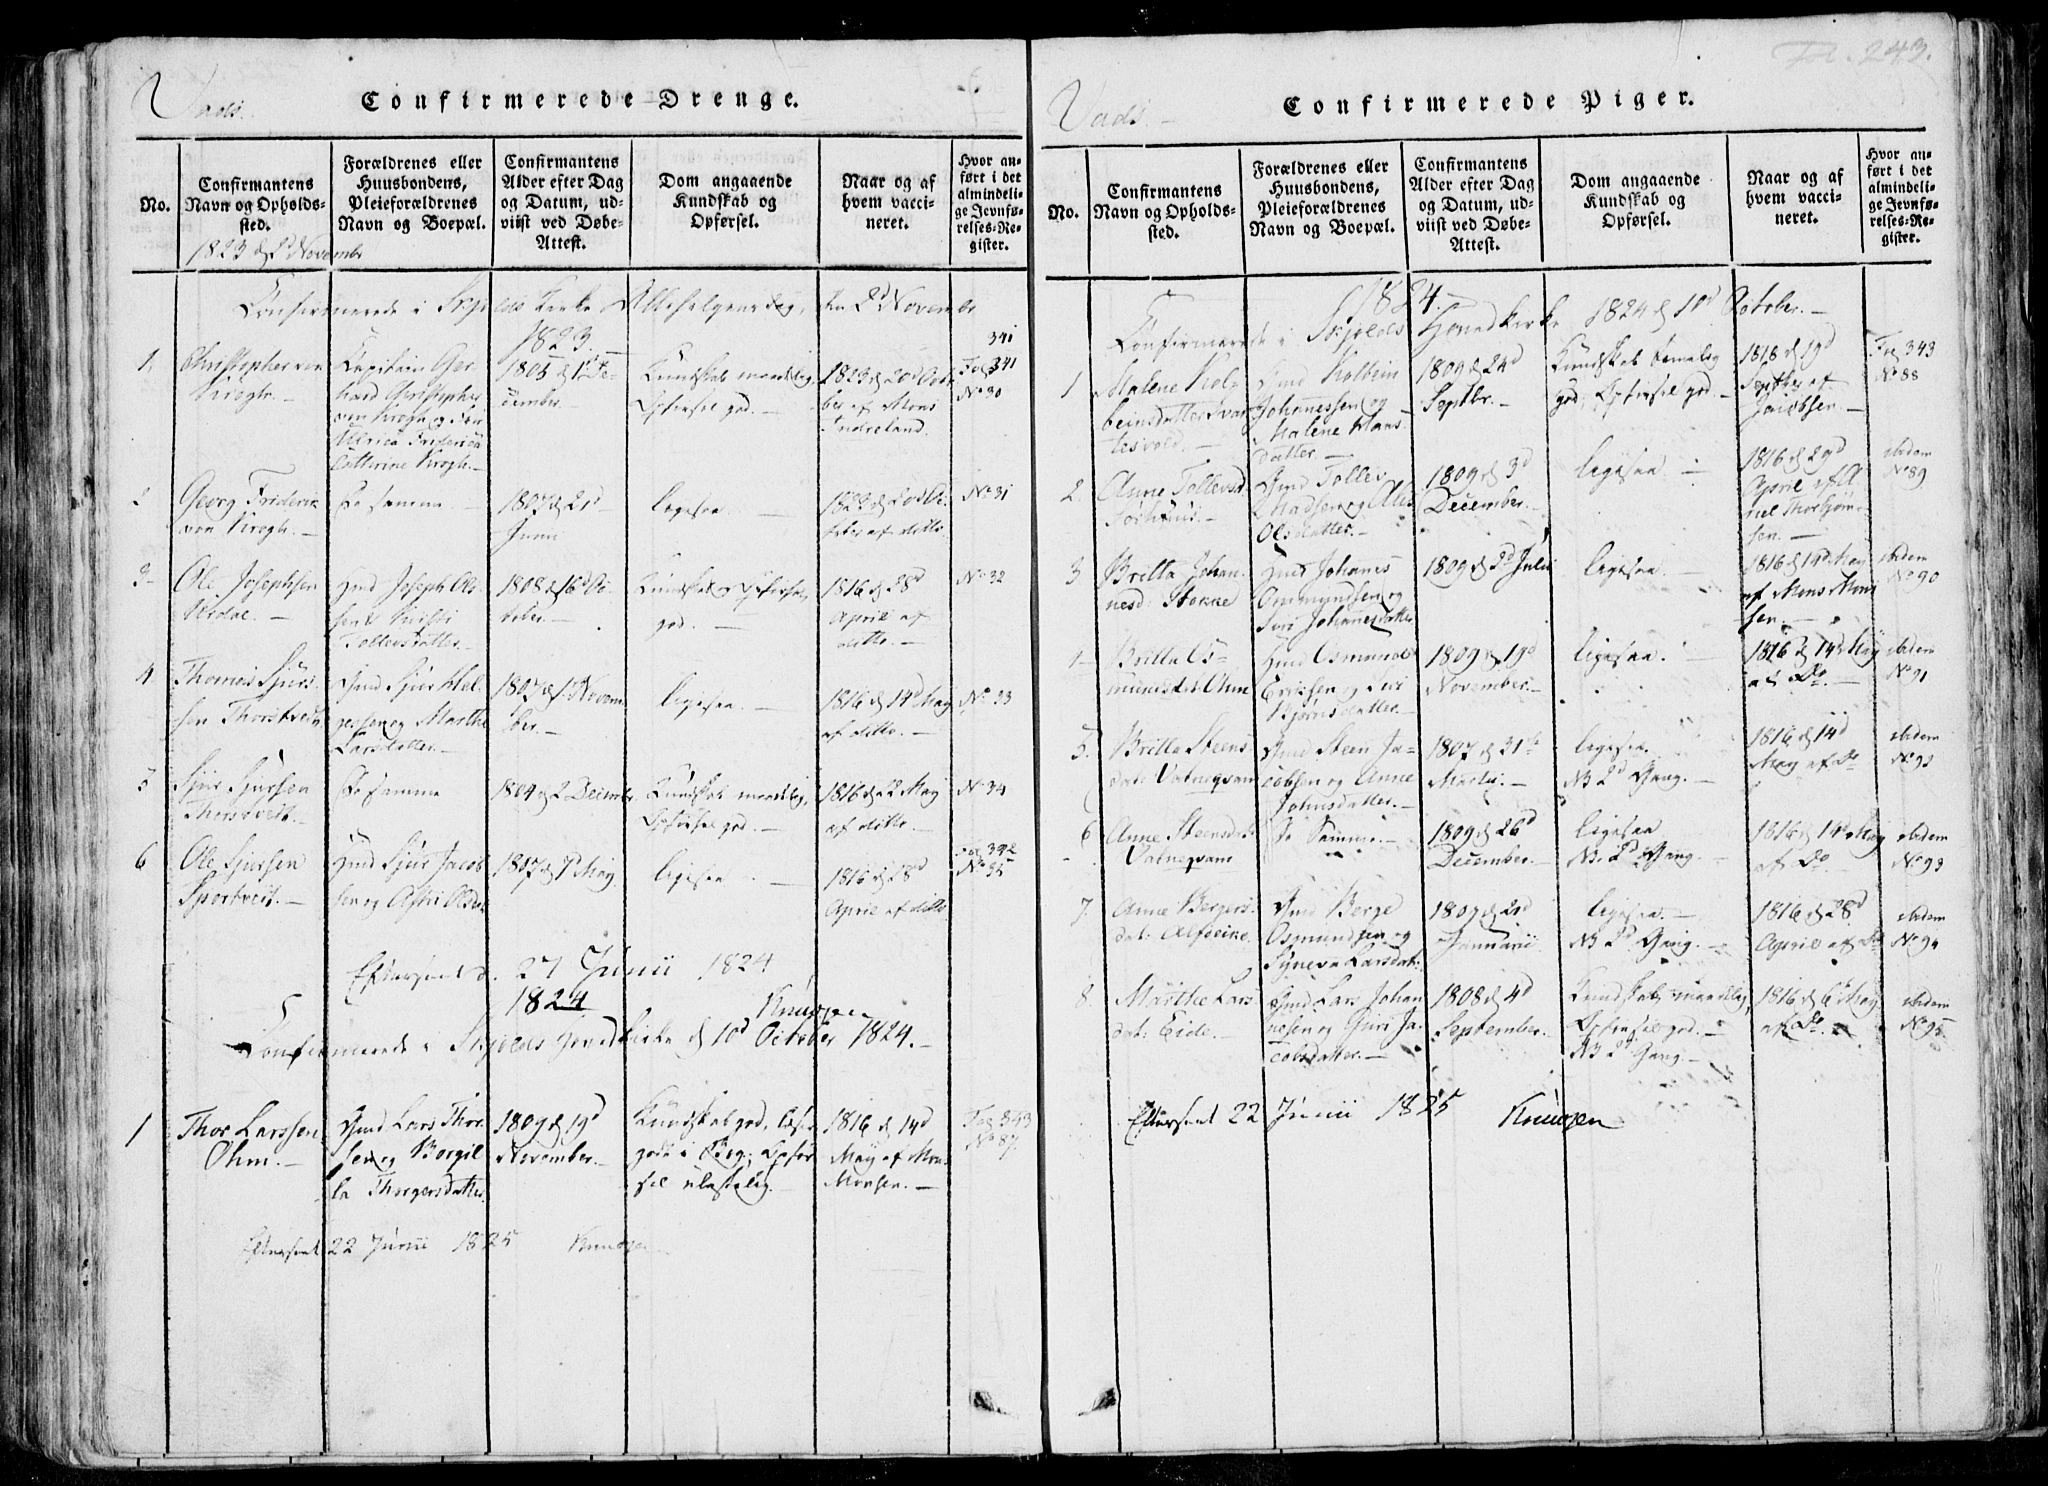 Vads.
Confirmerede Drenge.
No.
Confirmantens Navn og Opholdssted.
Forældrenes eller Huusbondens, Pleieforældrenes Navn og Boepæl.
Confirmantens Alder efter Dag og Datum, udviist ved Døbe-Attest.
Dom angaaende Kundskab og Opførsel.
Naar og af hvem vaccineret.
Hvor anført i det almindelige Jevnførelses-Register.
1823 d 2d Novembr
Confirmerede i Skjolds Kirke Allehelgens dag, den 2d Novembr
1823.
1. Christopher von Krogh. Capitain Gerhard Christopher von Krogh og Ulrica Friderica Cathrine Krogh. 1805 d 1ste December. Kundskab maadelig, Opførsel god. 1823 d 20d Octber af Mons Indreland. 341 Fol 341 No 30
2 Georg Friderik von Krogh. De samme. 1807 d 21d Junii ligesaa. 1823 d 20d October af ditto No 31
3 Ole Josephsen Gmd Joseph Olsen Tollevsdatter. 1808 d 16d October. Kundskab og Opførsel god. 1816 d 28d April af ditto. No 32
4. Thomas Sjursen Thorstveit Gmd Sjur Helgesen og Marthe Larsdatter. 1807 d 1 November. ligesaa. 1816 d 14d May af ditto. No 33
5 Sjur Sjursen Thorstveit. De samme 1809 d 2 Decembr Kundskab maadelig, Opførsel god. 1816 d 22 May af ditto. No 34
6 Ole Sjursen Sportveit. Gmd Sjur Jacobsen og Astri Olsdr 1807 d 7d May ligesaa. 1816 d 28d April af ditto Fol 342 No 35
Efterseet d. 27 Junii 1824
Knudzen
1824
Confirmerede i Skjolds Hovedkirke d 10d October 1824.
1 Thor Larssen Ohm. Gmd Lars Thorsen og Borgilla Thorgersdatter. 1809 d 19d November. Kundskab god, læser godt i Bog, Opførsel ulastelig. 1816 d 14d May af Mons Monsen. Fol 343 No 87.
Efterseet 22 Junii 1825 Knudzen
Fol. 243.
Vads.
Confirmerede Piger.
No.
Confirmantens Navn og Opholdssted.
Forældrenes eller Huusbondens, Pleieforældrenes Navn og Boepæl.
Confirmantens Alder efter Dag og Datum, udviist ved Døbe-Attest.
Dom angaaende Kundskab og Opførsel.
Naar og af hvem vaccineret.
Hvor anført i det almindelige Jevnførelses-Register.
1824.
Confirmerede i Skjolds Hovedkirke 1824 d 10d October.
1 Malene Kolbeinsdatter Gmd Kolbein Johannessen og Malene Hansdatter. 1809 d 24d Septbr. Kundskab temelig god, Opførsel god. 1818 d 19d Septber af Jacobsen. Fol 343 No 88
2. Anne Tollevsd. Gmd Tollev Madsen og Olsdatter. 1809 d 3d December. ligesaa. 1816 d 29d April af Thorbjørnsen. ibidem No 89
3 Britta Johannesd. Stokke Gmd Johanes Ommundsen og Siri Johannesdatter 1809 d 2d Julii ligesaa 1816 d 14d May af Mons Monsen. ibidem No 90
4 Britta Osmundsdat. Ohm Gmd Osmund Erichsen og Siri Bjørnsdatter. 1809 d 19d November. ligesaa. 1816 d 14d May af Do. ibidem No 91
5. Britta Steensdat. Vatneqvam Gmd Steen Jacobsen og Anne Johnsdatter. 1807 d 31te Martii. ligesaa. NB 2d Gang. 1816 d 14d May af Do ibidem No 92
6 Anne Steensdat. Vatneqvam De Samme. 1809 d 26d December. ligesaa NB. 2d Gang. 1816 d 14d May af Do. ibidem No 93
7. Anne Bergersdat. Gmd Berge Osmundsen og Syneva Larsdat. 1809 d 2d Januarii ligesaa. NB 2d Gang. 1816 d 28d April af Do ibidem No 94
8. Marthe Larsdat. Eide. Gmd Lars Johannesen og Guri Jacobsdatter. 1808 d 4d September. Kundskab maadelig, Opførsel god. NB 2d Gang. 1816 d 6 May af Do. ibidem No 95
Efterseet 22 Junii 1825 Knudzen